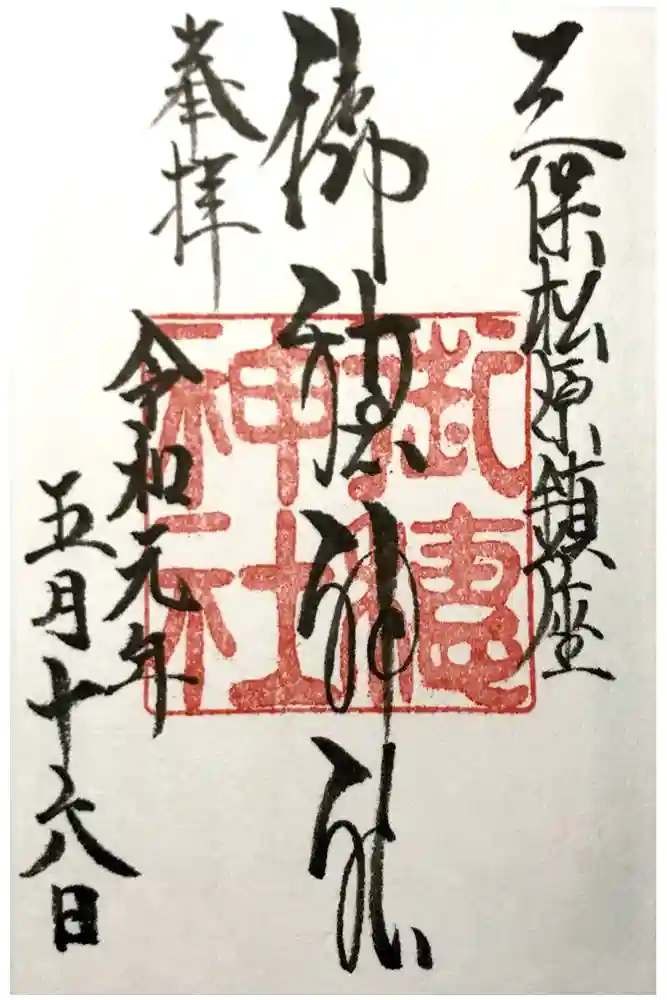 三保松原鎮座
御穂神社
奉拝
令和元年
五月十六日
御穂
神社